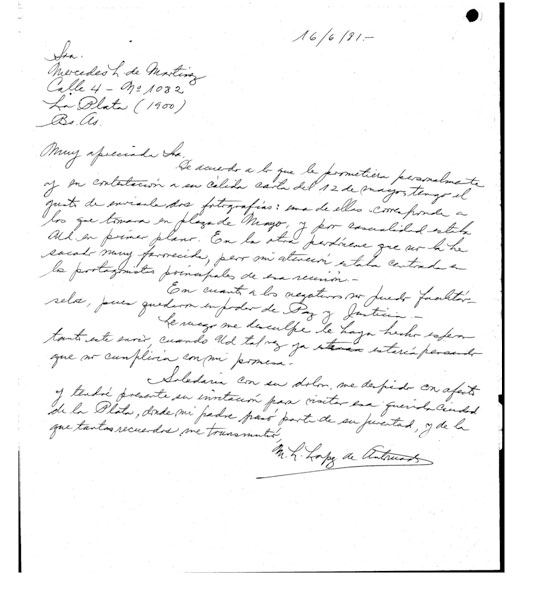 16/6/81.-
Sra.
Mercedes L. de Martinez
Calle 4 - Nº 1032
La Plata (1900)
Bs. As.
Muy apreciada Sra.
De acuerdo a lo que le prometiera personalmente
y en contestación a su cálida carta del 12 de mayo, tengo el
gusto de enviarle dos fotografías: una de ellas corresponde a
las que tomara en plaza de Mayo, y por casualidad estaba
Ud en primer plano. En la otra perdóneme que no la he
sacado muy favorecida, pero mi atención estaba centrada en
los protagonistas principales de esa reunión.-
En cuanto a los negativos no puedo facilitár-
selos, pues quedaron en poder de Paz y Justicia.-
Le ruego me disculpe le haya hecho esperar
tanto este envío, cuando Ud tal vez ya estaría pensando
que no cumpliría con mi promesa.
Solidaria con su dolor, me despido con afecto
y tendré presente su invitación para visitar esa querida ciudad
de La Plata, donde mi padre pasó parte de su juventud, y de la
que tantos recuerdos me transmitió,
M. L. Lopez de